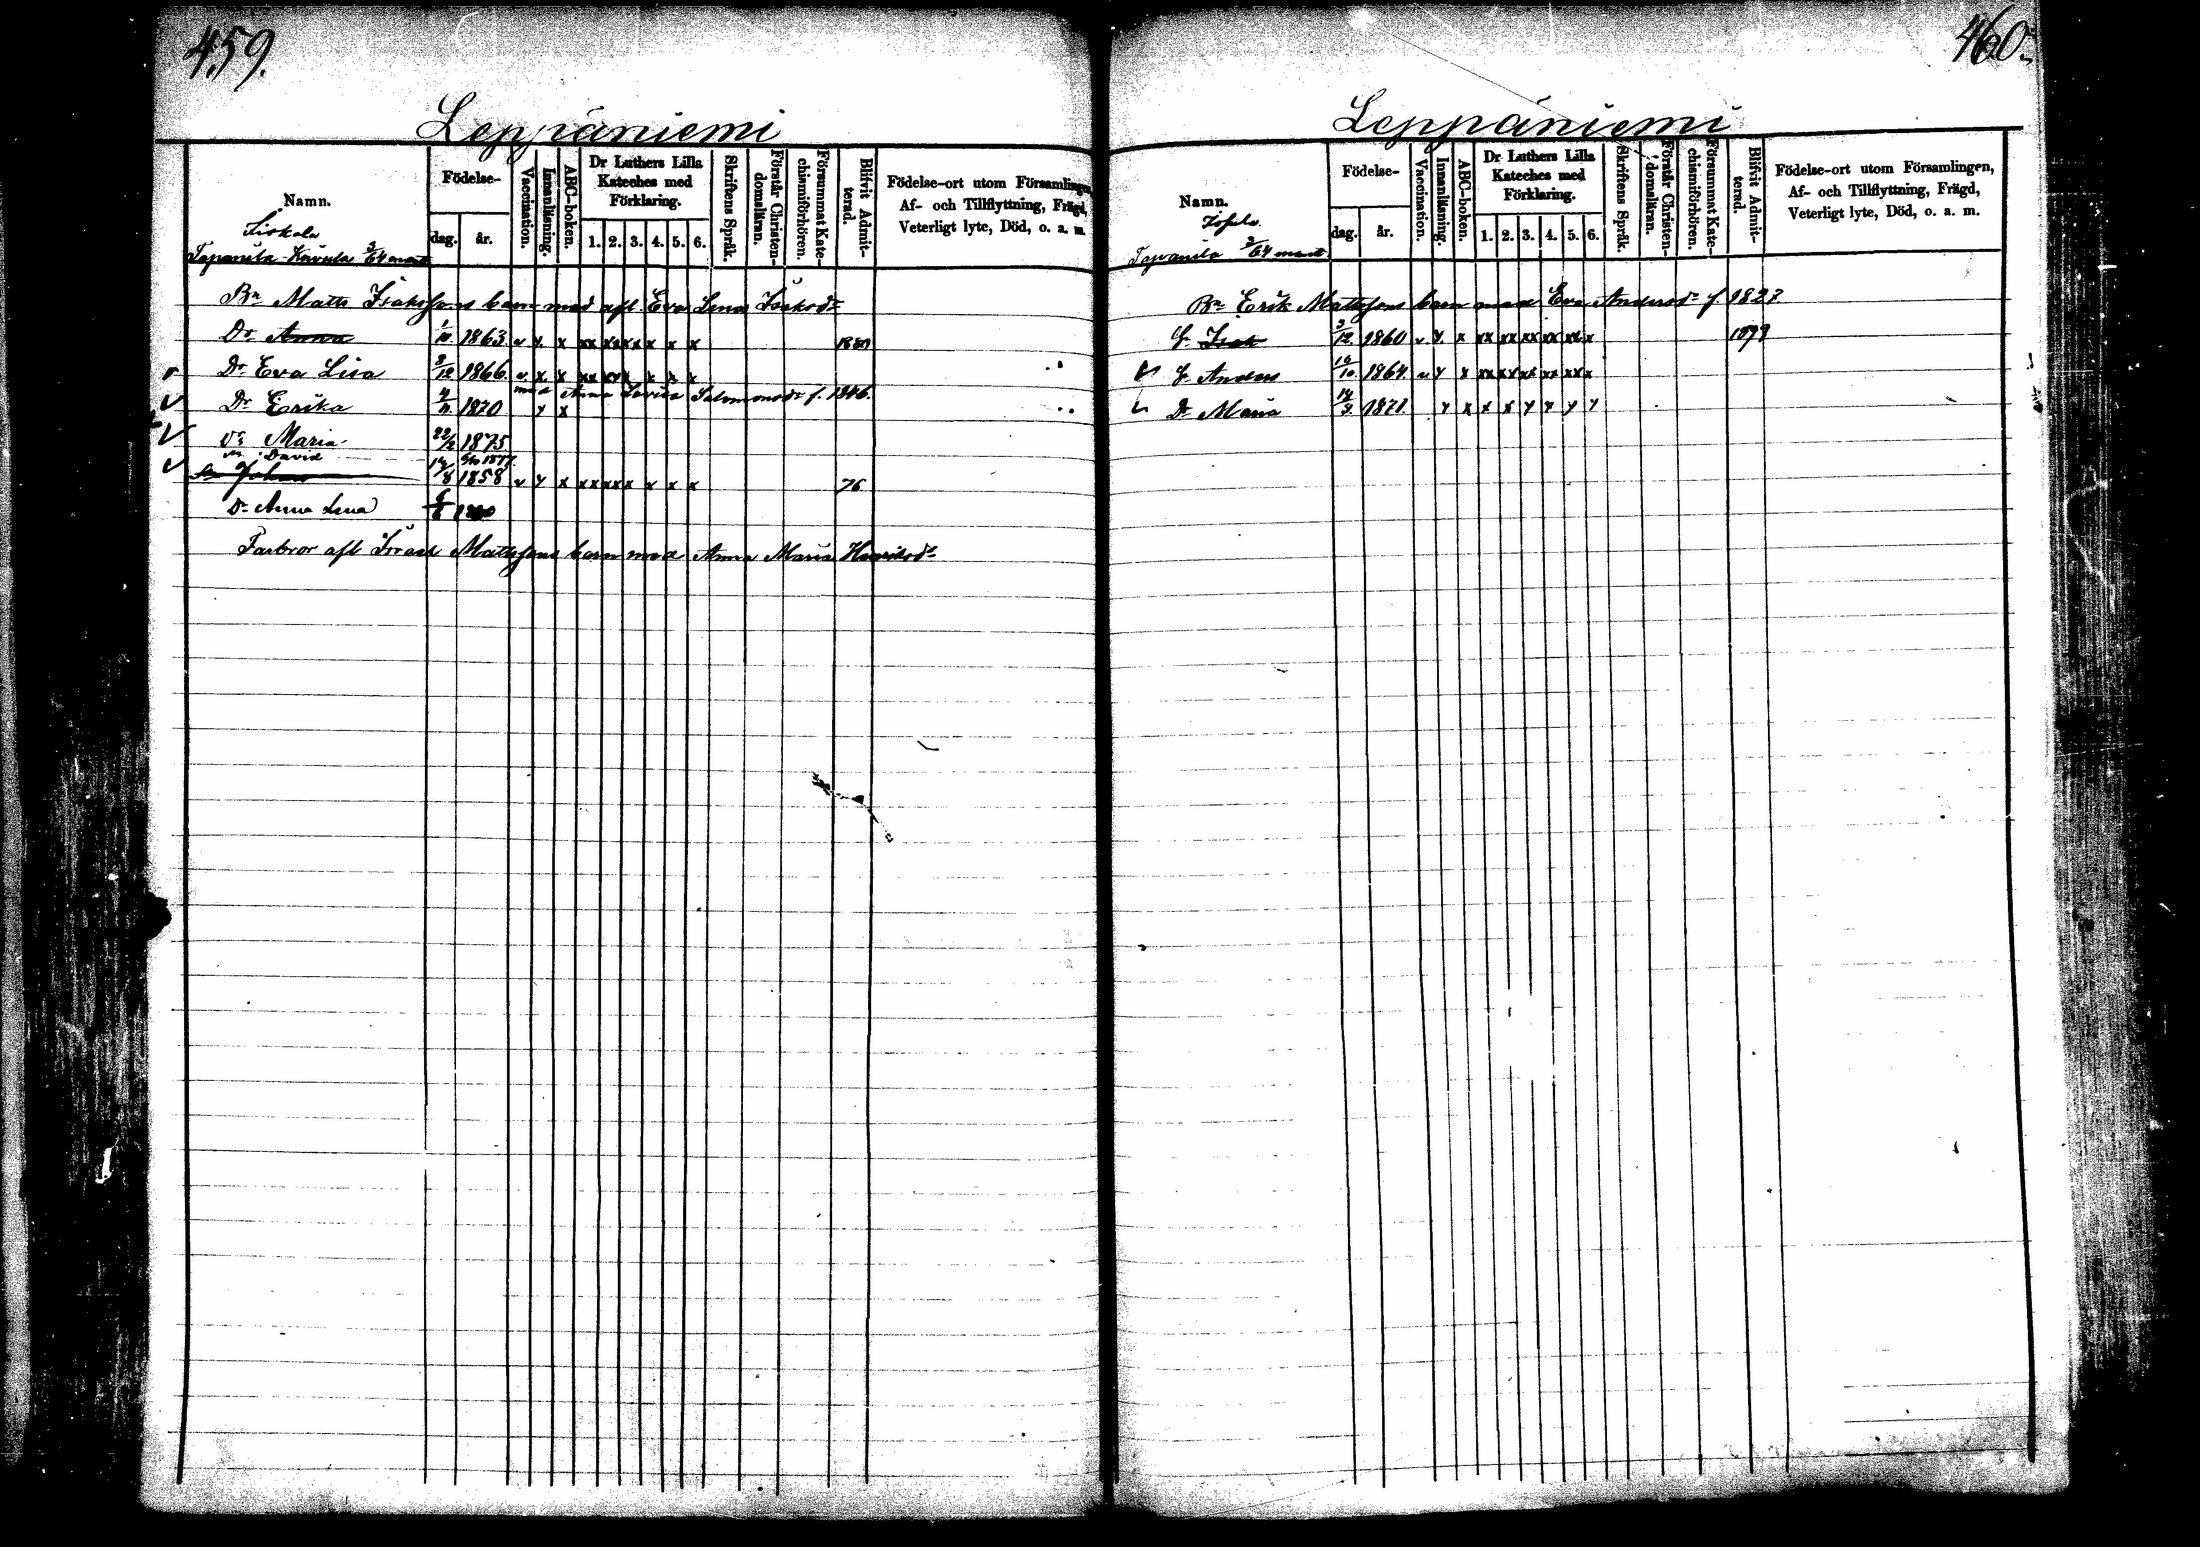 459.
Leppäniemi
Namn.
Födelse-
dag.
år.
Vaccination.
Innanläsning.
ABC-boken.
Dr Luthers Lilla
Kateches med
Förklaring.
1. 2. 3. 4. 5. 6.
Skriftens Språk.
Förstår Christen-
domsläran.
Försummat Kate-
chismiförhören.
Blifvit Admit-
terad.
Födelse-ort utom Församlingen,
Af- och Tillflyttning, Frägd,
Veterligt lyte, Död, o. a. m.
Tapanila
Bn Matts Isakssons barn med afl. Eva Lena Isaksdr
Dr Anna 1/10 1863 v x x xx xx xx x x x 1880
Dr Eva Lisa 3/12 1866 v x x xx xx x x x x
med Anna Lovisa Salomonsdr f. 1846.
Dr Erika 1870 y x
Dr Maria 22/2 1875
David 1877
Johan 1858 v y x xx xx x x x x 76
Dr Anna Lena
Farbror afl Mattssons barn med Anna Maria
460.
Leppäniemi
Namn.
Födelse-
dag.
år.
Vaccination.
Innanläsning.
ABC-boken.
Dr Luthers Lilla
Kateches med
Förklaring.
1. 2. 3. 4. 5. 6.
Skriftens Språk.
Förstår Christen-
domsläran.
Försummat Kate-
chismiförhören.
Blifvit Admit-
terad.
Födelse-ort utom Församlingen,
Af- och Tillflyttning, Frägd,
Veterligt lyte, Död, o. a. m.
Tapanila
Bn Erik Mattssons barn med Eva Andersdr f. 1827.
Isak 3/12 1860 v y x xx xx xx xx xx x
Anders 1864 v y x xx xx xx xx xx x
Dr Maria 1871 y x x x y y y y